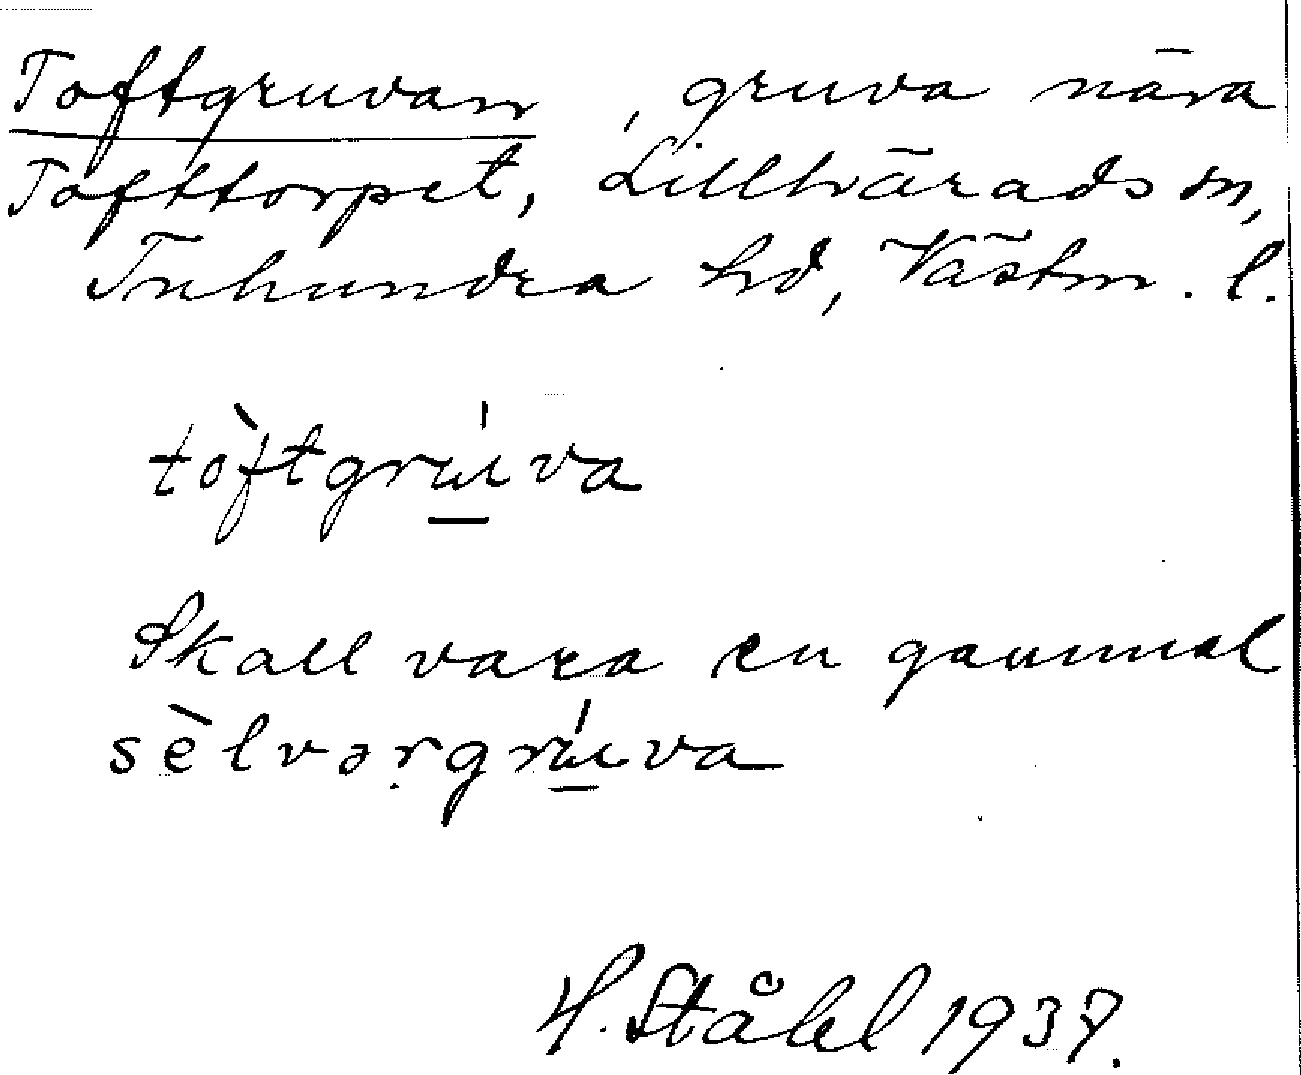 Toftgruvan, gruva nära
Tofttorpet, Lillhärads sn,
Tuhundra hd, Västm. l.
tòftgrúva
Skall vara en gammal
sèlvərgrúva
H. Ståhl 1937.